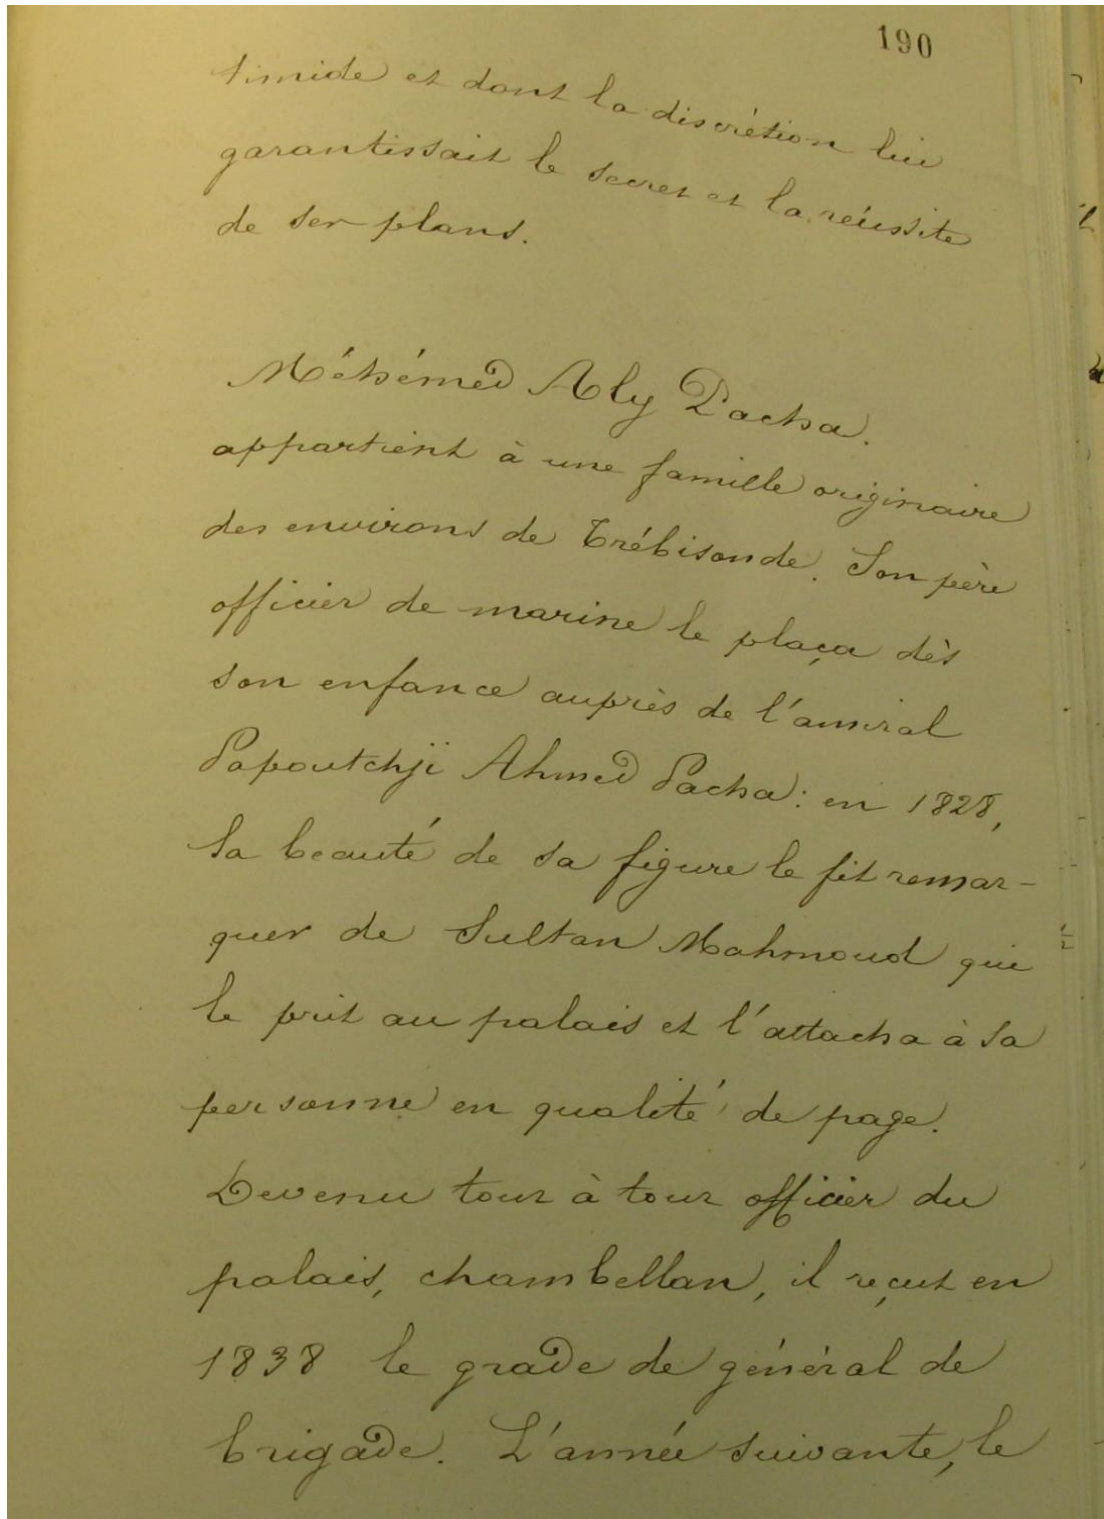 190
timide et dont la discrétion lui
garantissait le secret et la réussite
de ses plans.
Méhémed Aly Pacha.
appartient à une famille originaire
des environs de Trébisonde. Son père
officier de marine le plaça dès
son enfance auprès de l'amiral
Papoutchji Ahmed Pacha: en 1828,
la beauté de sa figure le fit remar-
quer de Sultan Mahmoud qui
le prit au palais et l'attacha à sa
personne en qualité de page.
Devenu tour à tour officier du
palais, chambellan, il reçut en
1838 le grade de général de
brigade. L'année suivante, le